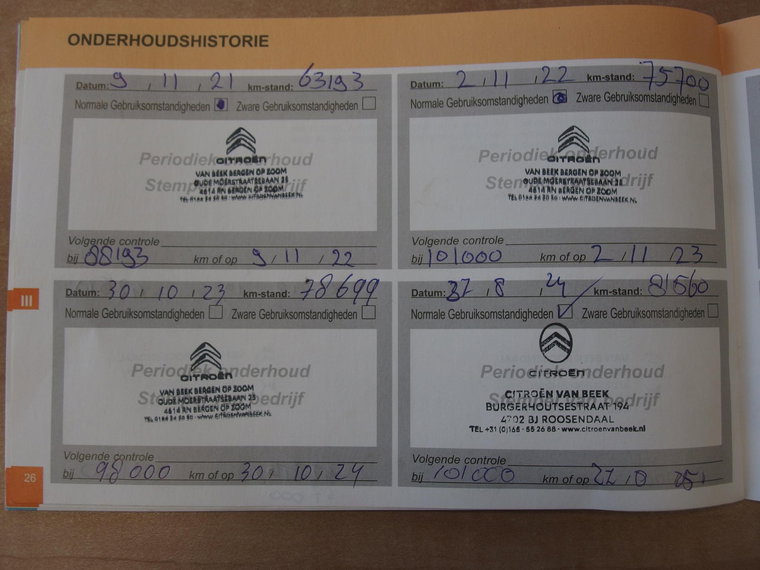 ONDERHOUDSHISTORIE
Datum: 9 , 11 , 21 km-stand: 63193
Normale Gebruiksomstandigheden Zware Gebruiksomstandigheden
Periodiek onderhoud
CITROËN
VAN BEEK BERGEN OP ZOOM
OUDE MOERSTRAATSEBAAN
4614 RN BERGEN OP ZOOM
Volgende controle
bij 88193 km of op 9 , 11 , 22
Datum: 2 , 11 , 22 km-stand: 75700
Normale Gebruiksomstandigheden Zware Gebruiksomstandigheden
Periodiek onderhoud
CITROËN
VAN BEEK BERGEN OP ZOOM
OUDE MOERSTRAATSEBAAN
4614 RN BERGEN OP ZOOM
WWW.CITROENVANBEEK.NL
Volgende controle
bij 101000 km of op 2 , 11 , 23
III
Datum: 30 , 10 , 23 km-stand: 78699
Normale Gebruiksomstandigheden Zware Gebruiksomstandigheden
Periodiek onderhoud
CITROËN
VAN BEEK BERGEN OP ZOOM
OUDE MOERSTRAATSEBAAN
4614 RN BERGEN OP ZOOM
Volgende controle
bij 98000 km of op 30 , 10 , 24
Datum: , 8 , 24 km-stand: 81560
Normale Gebruiksomstandigheden Zware Gebruiksomstandigheden
Periodiek onderhoud
CITROËN
CITROËN VAN BEEK
BURGERHOUTSESTRAAT 194
4702 BJ ROOSENDAAL
TEL +31 (0)165 - 55 26 88 - www.citroenvanbeek.nl
Volgende controle
bij 101000 km of op
26